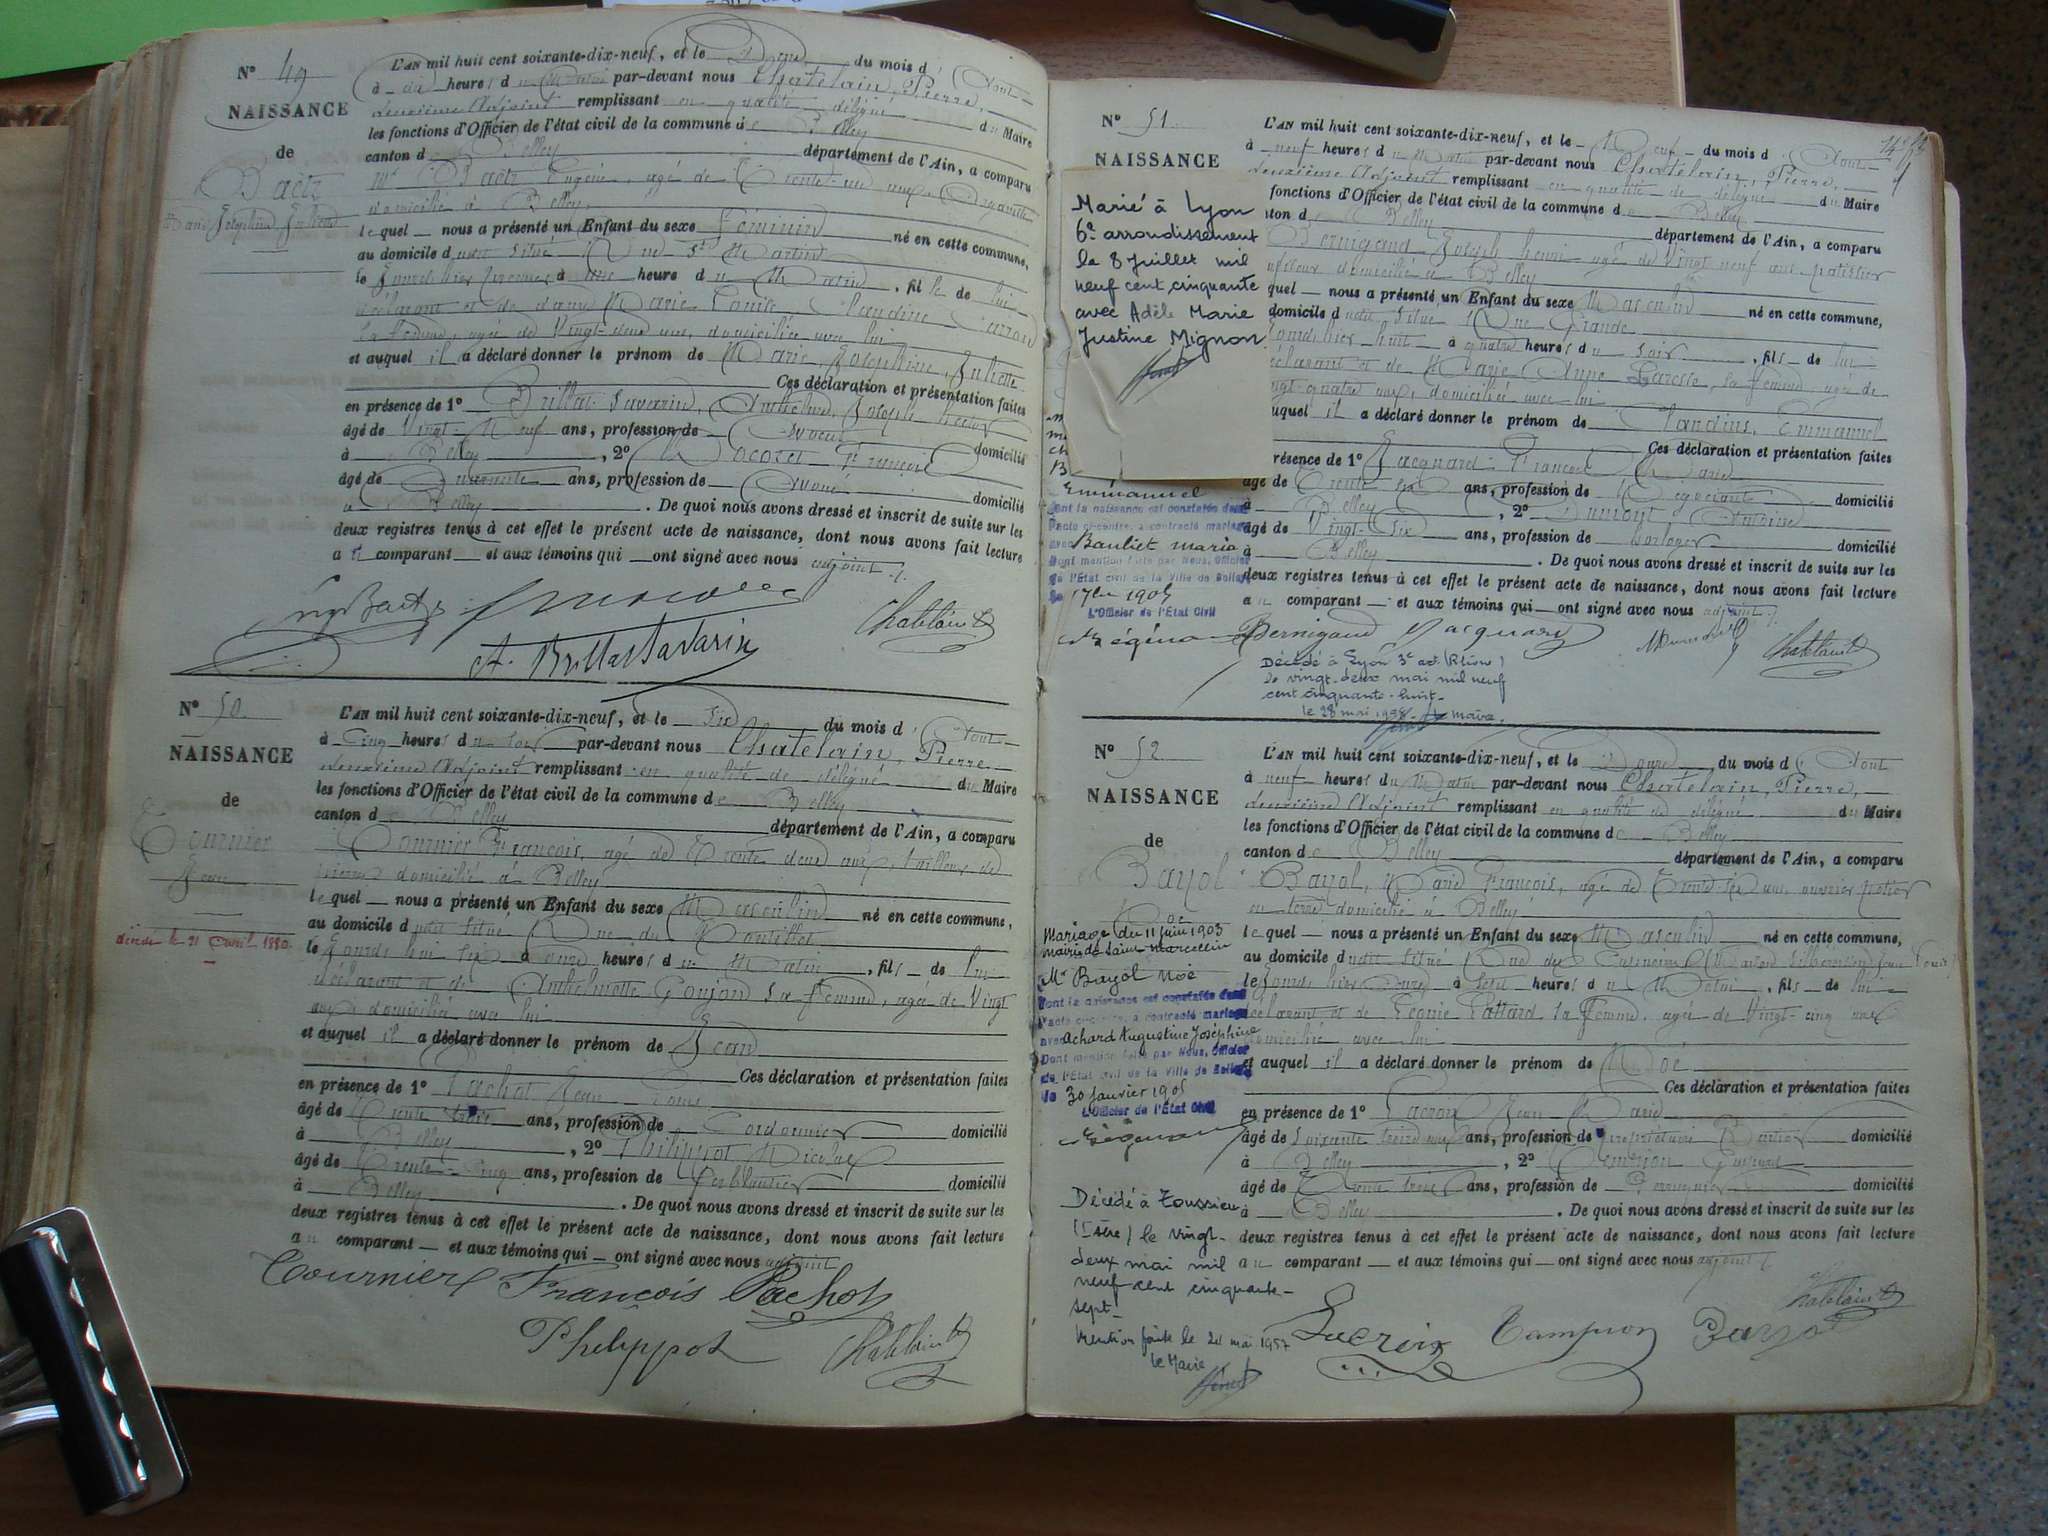 N° 49
NAISSANCE
de
Baetz
Marie Joséphine Juliette
L'AN mil huit cent soixante-dix-neuf, et le Deux du mois d'Août
à dix heures du Matin par-devant nous Chatelain, Pierre,
deuxième Adjoint remplissant en qualité de délégué du Maire
les fonctions d'Officier de l'état civil de la commune de Belley
canton de Belley département de l'Ain, a comparu
Mr Baetz Eugène, agé de Trente-un ans, Organiste
domicilié à Belley,
lequel nous a présenté un Enfant du sexe Féminin né en cette commune,
au domicile dudit situé Rue St Martin
le Jourd'hier premier à une heure du Matin, fille de lui
déclarant et de dame Marie Louise Claudine Carron
sa femme, agée de Vingt-deux ans, domiciliée avec lui
et auquel il a déclaré donner le prénom de Marie Joséphine Juliette
Ces déclaration et présentation faites
en présence de 1° Brillat-Savarin, Anthelme, Joseph Hector
âgé de Vingt-Neuf ans, profession de Avocat domicilié
à Belley, 2° François
âgé de Quarante ans, profession de Avoué domicilié
à Belley. De quoi nous avons dressé et inscrit de suite sur les
deux registres tenus à cet effet le présent acte de naissance, dont nous avons fait lecture
au comparant et aux témoins qui ont signé avec nous adjoint.
Eug Baetz
A. Brillat Savarin
Chatelain
N° 50
NAISSANCE
de
Tournier
Jean
décédé le 21 Avril 1880
L'AN mil huit cent soixante-dix-neuf, et le Six du mois d'Août
à Cinq heures du soir par-devant nous Chatelain, Pierre
deuxième Adjoint remplissant en qualité de délégué du Maire
les fonctions d'Officier de l'état civil de la commune de Belley
canton de Belley département de l'Ain, a comparu
Tournier François, agé de Trente deux ans, tailleur de
pierres domicilié à Belley
lequel nous a présenté un Enfant du sexe Masculin né en cette commune,
au domicile dudit situé Rue du
le Jourd'hui six à onze heures du Matin, fils de lui
déclarant et de Anthelmette Goujon sa femme, agée de Vingt
ans domiciliée avec lui
et auquel il a déclaré donner le prénom de Jean
Ces déclaration et présentation faites
en présence de 1° Pachot Jean Louis
âgé de Trente trois ans, profession de Cordonnier domicilié
à Belley, 2° Philippot Nicolas
âgé de Trente-Cinq ans, profession de Ferblantier domicilié
à Belley. De quoi nous avons dressé et inscrit de suite sur les
deux registres tenus à cet effet le présent acte de naissance, dont nous avons fait lecture
au comparant et aux témoins qui ont signé avec nous adjoint
Tournier François Pachot
Philippot Chatelain
N° 51
NAISSANCE
Marié à Lyon
6e arrondissement
le 8 Juillet mil
neuf cent cinquante
avec Adèle Marie
Justine Mignon
Emmanuel
dont la naissance est constatée dans
l'acte ci-contre, a contracté mariage
avec Bauliet Maria
Dont mention faite par Nous, Officier
de l'État civil de la Ville de Belley
1905
L'Officier de l'État Civil
L'AN mil huit cent soixante-dix-neuf, et le Neuf du mois d'Août
à neuf heures du Matin par-devant nous Chatelain, Pierre,
deuxième Adjoint remplissant en qualité de délégué du Maire
fonctions d'Officier de l'état civil de la commune de Belley
nton de Belley département de l'Ain, a comparu
Bernigaud Joseph henri agé de Vingt neuf ans patissier
domicilié à Belley
quel nous a présenté un Enfant du sexe Masculin né en cette commune,
domicile dudit situé Rue Grande
Jourd'hier huit à quatre heures du soir, fils de lui
déclarant et de Marie Anne sa femme, agée de
Vingt-quatre ans, domiciliée avec lui
auquel il a déclaré donner le prénom de Claudius, Emmanuel
Ces déclaration et présentation faites
présence de 1° Jacquard François Marie
âgé de Trente six ans, profession de Négociant domicilié
à Belley, 2° Dumont Antoine
âgé de Vingt-Six ans, profession de horloger domicilié
à Belley. De quoi nous avons dressé et inscrit de suite sur les
deux registres tenus à cet effet le présent acte de naissance, dont nous avons fait lecture
au comparant et aux témoins qui ont signé avec nous adjoint.
Bernigaud Jacquard Chatelain
Décédé à Lyon 3e arr. (Rhône)
le vingt-deux mai mil neuf
cent cinquante-huit-
le 28 mai 1958. Le maire.
N° 52
NAISSANCE
de
Bayol
Noé
Mariage du 11 juin 1903
mairie de Saint Marcellin
Mr Bayol Noé
dont la naissance est constatée dans
l'acte ci-contre, a contracté mariage
avec Achard Augustine Joséphine
Dont mention faite par Nous, Officier
de l'État civil de la Ville de Belley
le 30 Janvier 1905
L'Officier de l'État Civil
Décédé à Toussieu
(Isère) le vingt-
deux mai mil
neuf cent cinquante-
sept-
Mention faite le 24 mai 1957
Le Maire
L'AN mil huit cent soixante-dix-neuf, et le Douze du mois d'Août
à neuf heures du Matin par-devant nous Chatelain, Pierre,
deuxième Adjoint remplissant en qualité de délégué du Maire
les fonctions d'Officier de l'état civil de la commune de Belley
canton de Belley département de l'Ain, a comparu
Bayol, Marie François, agé de Trente-six ans, ouvrier potier
en terre domicilié à Belley
lequel nous a présenté un Enfant du sexe Masculin né en cette commune,
au domicile dudit situé Rue des
le Jourd'hier Onze à Sept heures du Matin, fils de lui
déclarant et de Léonie Pattard sa femme, agée de Vingt-cinq ans
domiciliée avec lui
et auquel il a déclaré donner le prénom de Noé
Ces déclaration et présentation faites
en présence de 1° Lacroix Jean Marie
âgé de Soixante treize ans, profession de propriétaire Rentier domicilié
à Belley, 2°
âgé de Trente trois ans, profession de Perruquier domicilié
à Belley. De quoi nous avons dressé et inscrit de suite sur les
deux registres tenus à cet effet le présent acte de naissance, dont nous avons fait lecture
au comparant et aux témoins qui ont signé avec nous adjoint
Chatelain
Lacroix Bayol